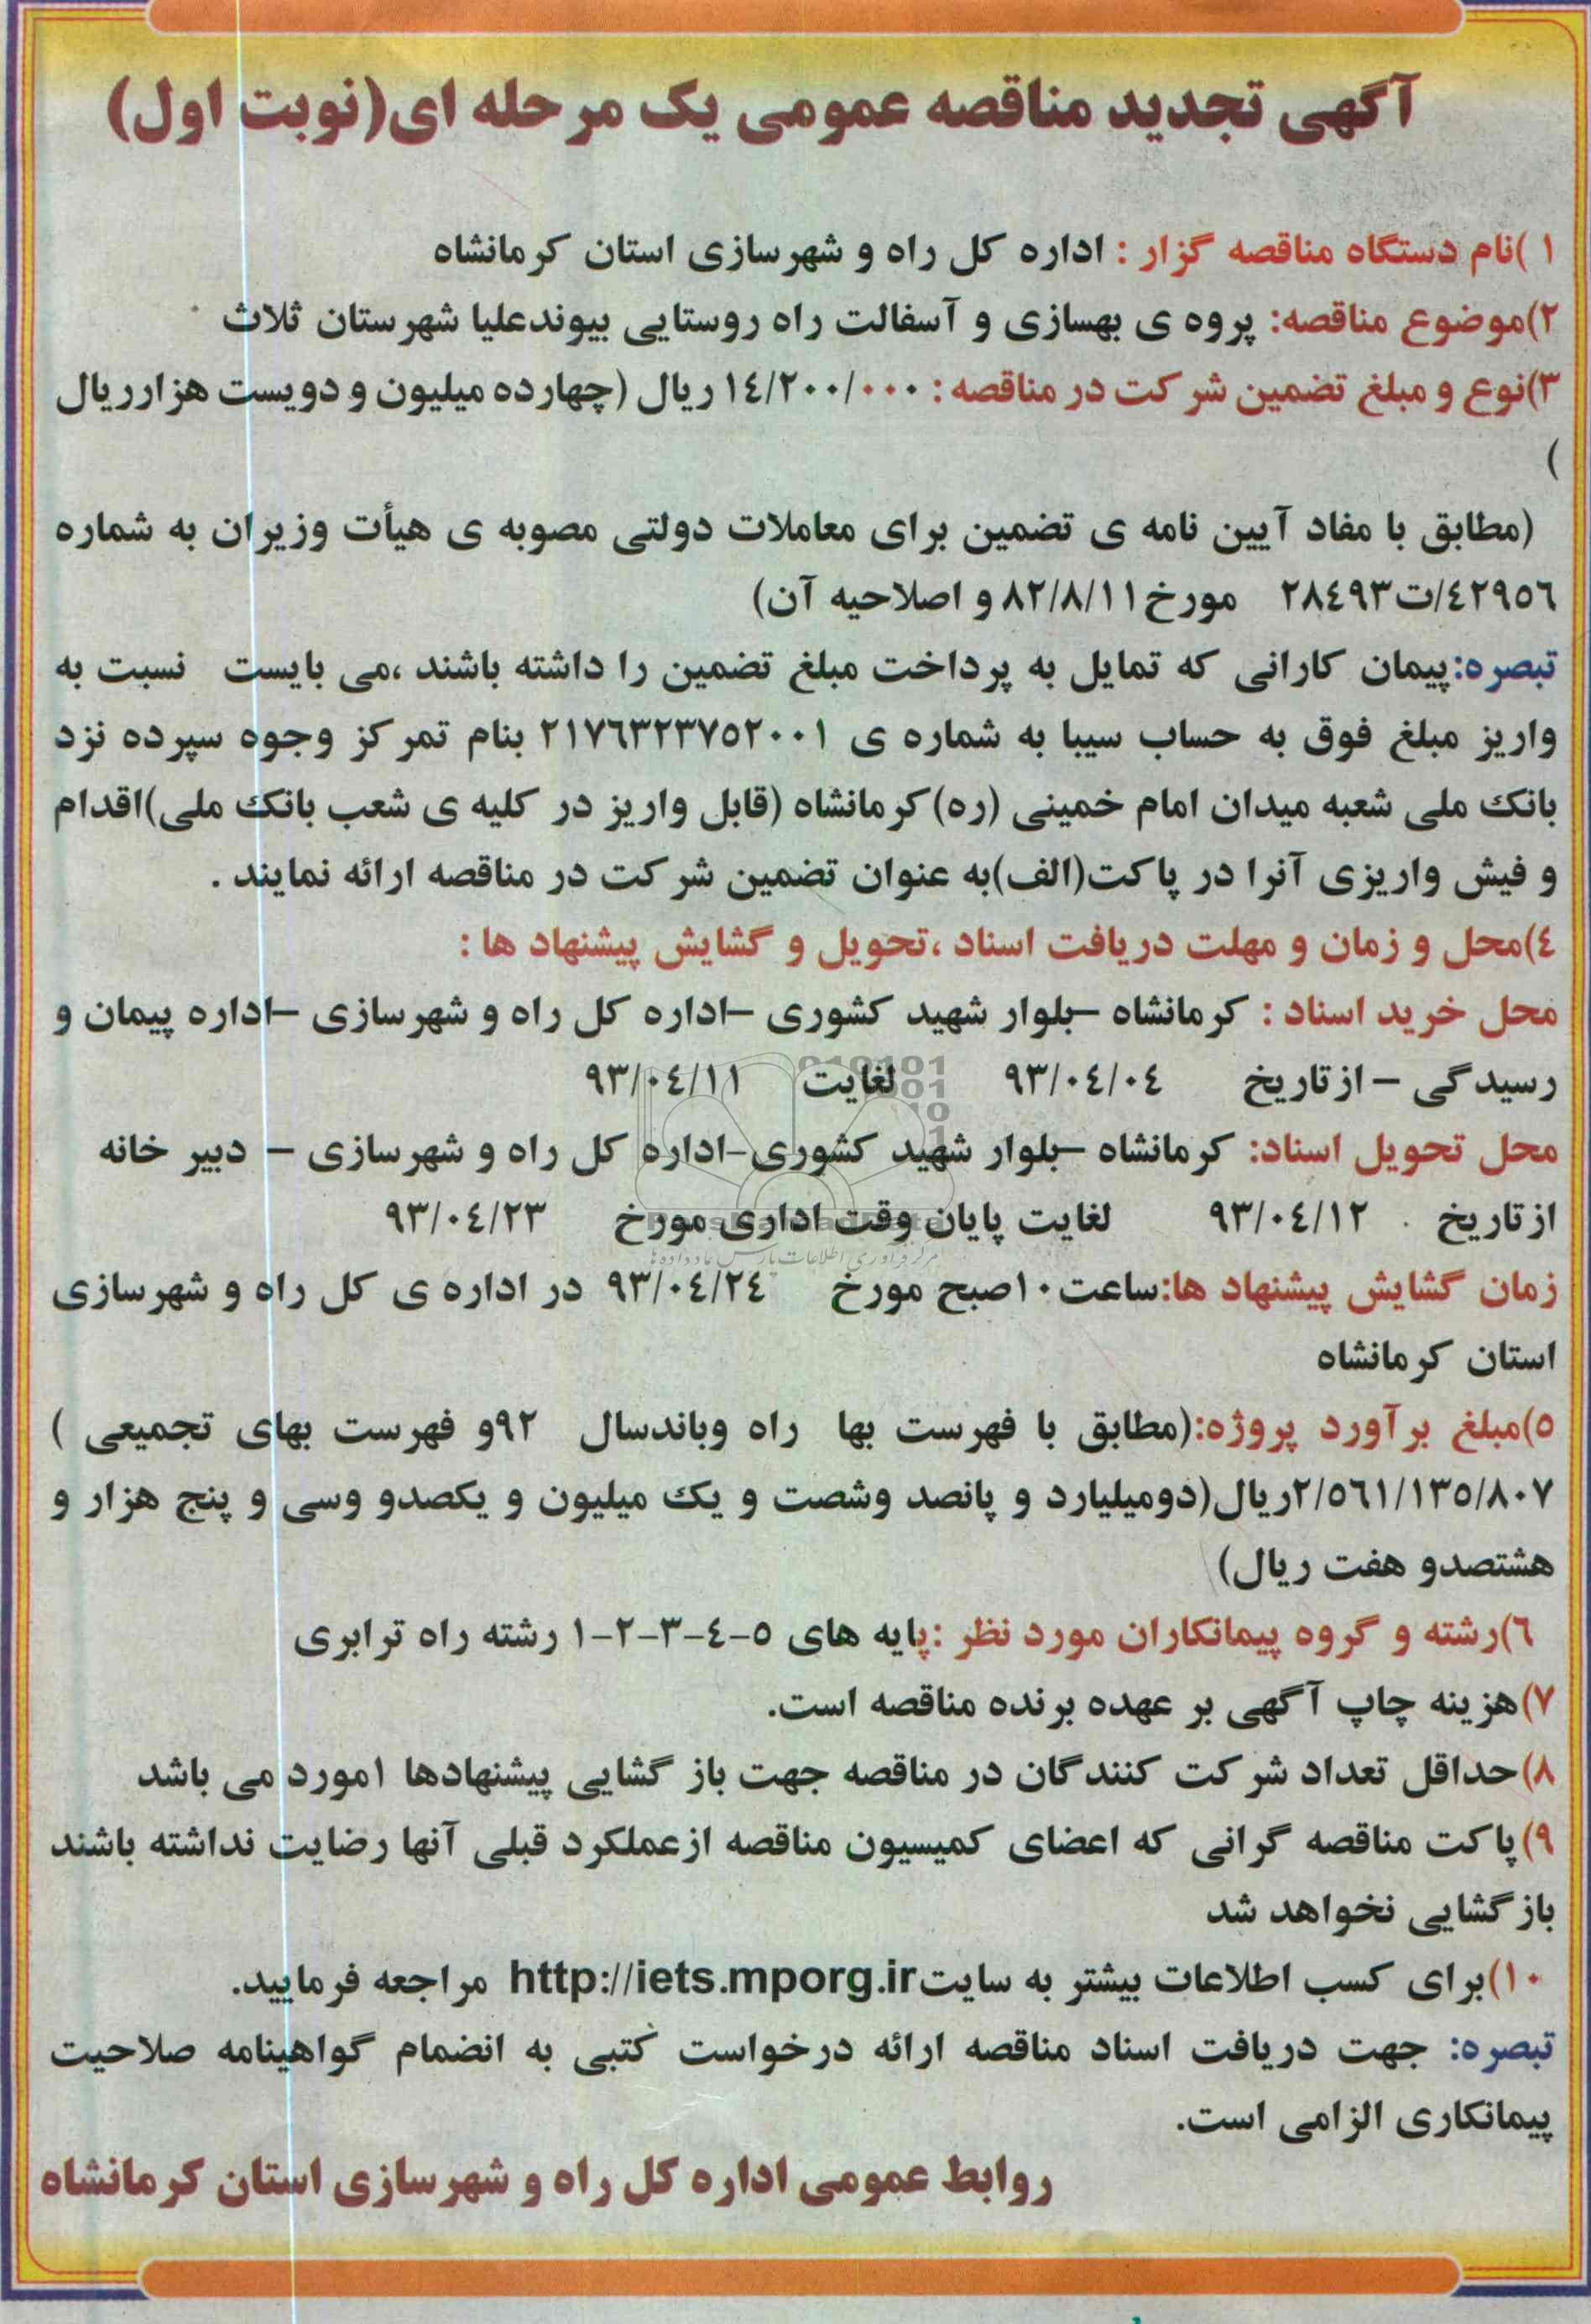 آگهی تجدید مناقصه عمومی یک مرحله ای(نوبت اول)
۱)نام دستگاه مناقصه گزار : اداره کل راه و شهرسازی استان کرمانشاه
۲)موضوع مناقصه: پروه ی بهسازی و آسفالت راه روستایی بیوندعلیا شهرستان ثلاث
۳)نوع و مبلغ تضمین شرکت در مناقصه : ۱٤/۲۰۰/۰۰۰ ریال (چهارده میلیون و دویست هزارریال
)
(مطابق با مفاد آیین نامه ی تضمین برای معاملات دولتی مصوبه ی هیأت وزیران به شماره
٤۲۹٥٦/ت۲۸٤۹۳ مورخ ۸۲/۸/۱۱ و اصلاحیه آن)
تبصره:پیمان کارانی که تمایل به پرداخت مبلغ تضمین را داشته باشند ،می بایست نسبت به
واریز مبلغ فوق به حساب سیبا به شماره ی ۲۱۷٦۳۲۳۷٥۲۰۰۱ بنام تمرکز وجوه سپرده نزد
بانک ملی شعبه میدان امام خمینی (ره)کرمانشاه (قابل واریز در کلیه ی شعب بانک ملی)اقدام
و فیش واریزی آنرا در پاکت(الف)به عنوان تضمین شرکت در مناقصه ارائه نمایند .
٤)محل و زمان و مهلت دریافت اسناد ،تحویل و گشایش پیشنهاد ها :
محل خرید اسناد : کرمانشاه –بلوار شهید کشوری –اداره کل راه و شهرسازی –اداره پیمان و
رسیدگی – ازتاریخ ۹۳/۰٤/۰٤ لغایت ۹۳/۰٤/۱۱
محل تحویل اسناد: کرمانشاه –بلوار شهید کشوری-اداره کل راه و شهرسازی – دبیر خانه
ازتاریخ ۹۳/۰٤/۱۲ لغایت پایان وقت اداری مورخ ۹۳/۰٤/۲۳
مرکز فرآوری اطلاعات پارس نماد داده ها
زمان گشایش پیشنهاد ها:ساعت۱۰صبح مورخ ۹۳/۰٤/۲٤ در اداره ی کل راه و شهرسازی
استان کرمانشاه
٥)مبلغ برآورد پروژه:(مطابق با فهرست بها راه وباندسال ۹۲و فهرست بهای تجمیعی )
۲/٥٦۱/۱۳٥/۸۰۷ریال(دومیلیارد و پانصد وشصت و یک میلیون و یکصدو وسی و پنج هزار و
هشتصدو هفت ریال)
٦)رشته و گروه پیمانکاران مورد نظر :پایه های ٥-٤-۳-۲-۱ رشته راه ترابری
۷)هزینه چاپ آگهی بر عهده برنده مناقصه است.
۸)حداقل تعداد شرکت کنندگان در مناقصه جهت باز گشایی پیشنهادها ۱مورد می باشد
۹)پاکت مناقصه گرانی که اعضای کمیسیون مناقصه ازعملکرد قبلی آنها رضایت نداشته باشند
بازگشایی نخواهد شد
۱۰)برای کسب اطلاعات بیشتر به سایتhttp://iets.mporg.ir مراجعه فرمایید.
تبصره: جهت دریافت اسناد مناقصه ارائه درخواست کتبی به انضمام گواهینامه صلاحیت
پیمانکاری الزامی است.
روابط عمومی اداره کل راه و شهرسازی استان کرمانشاه